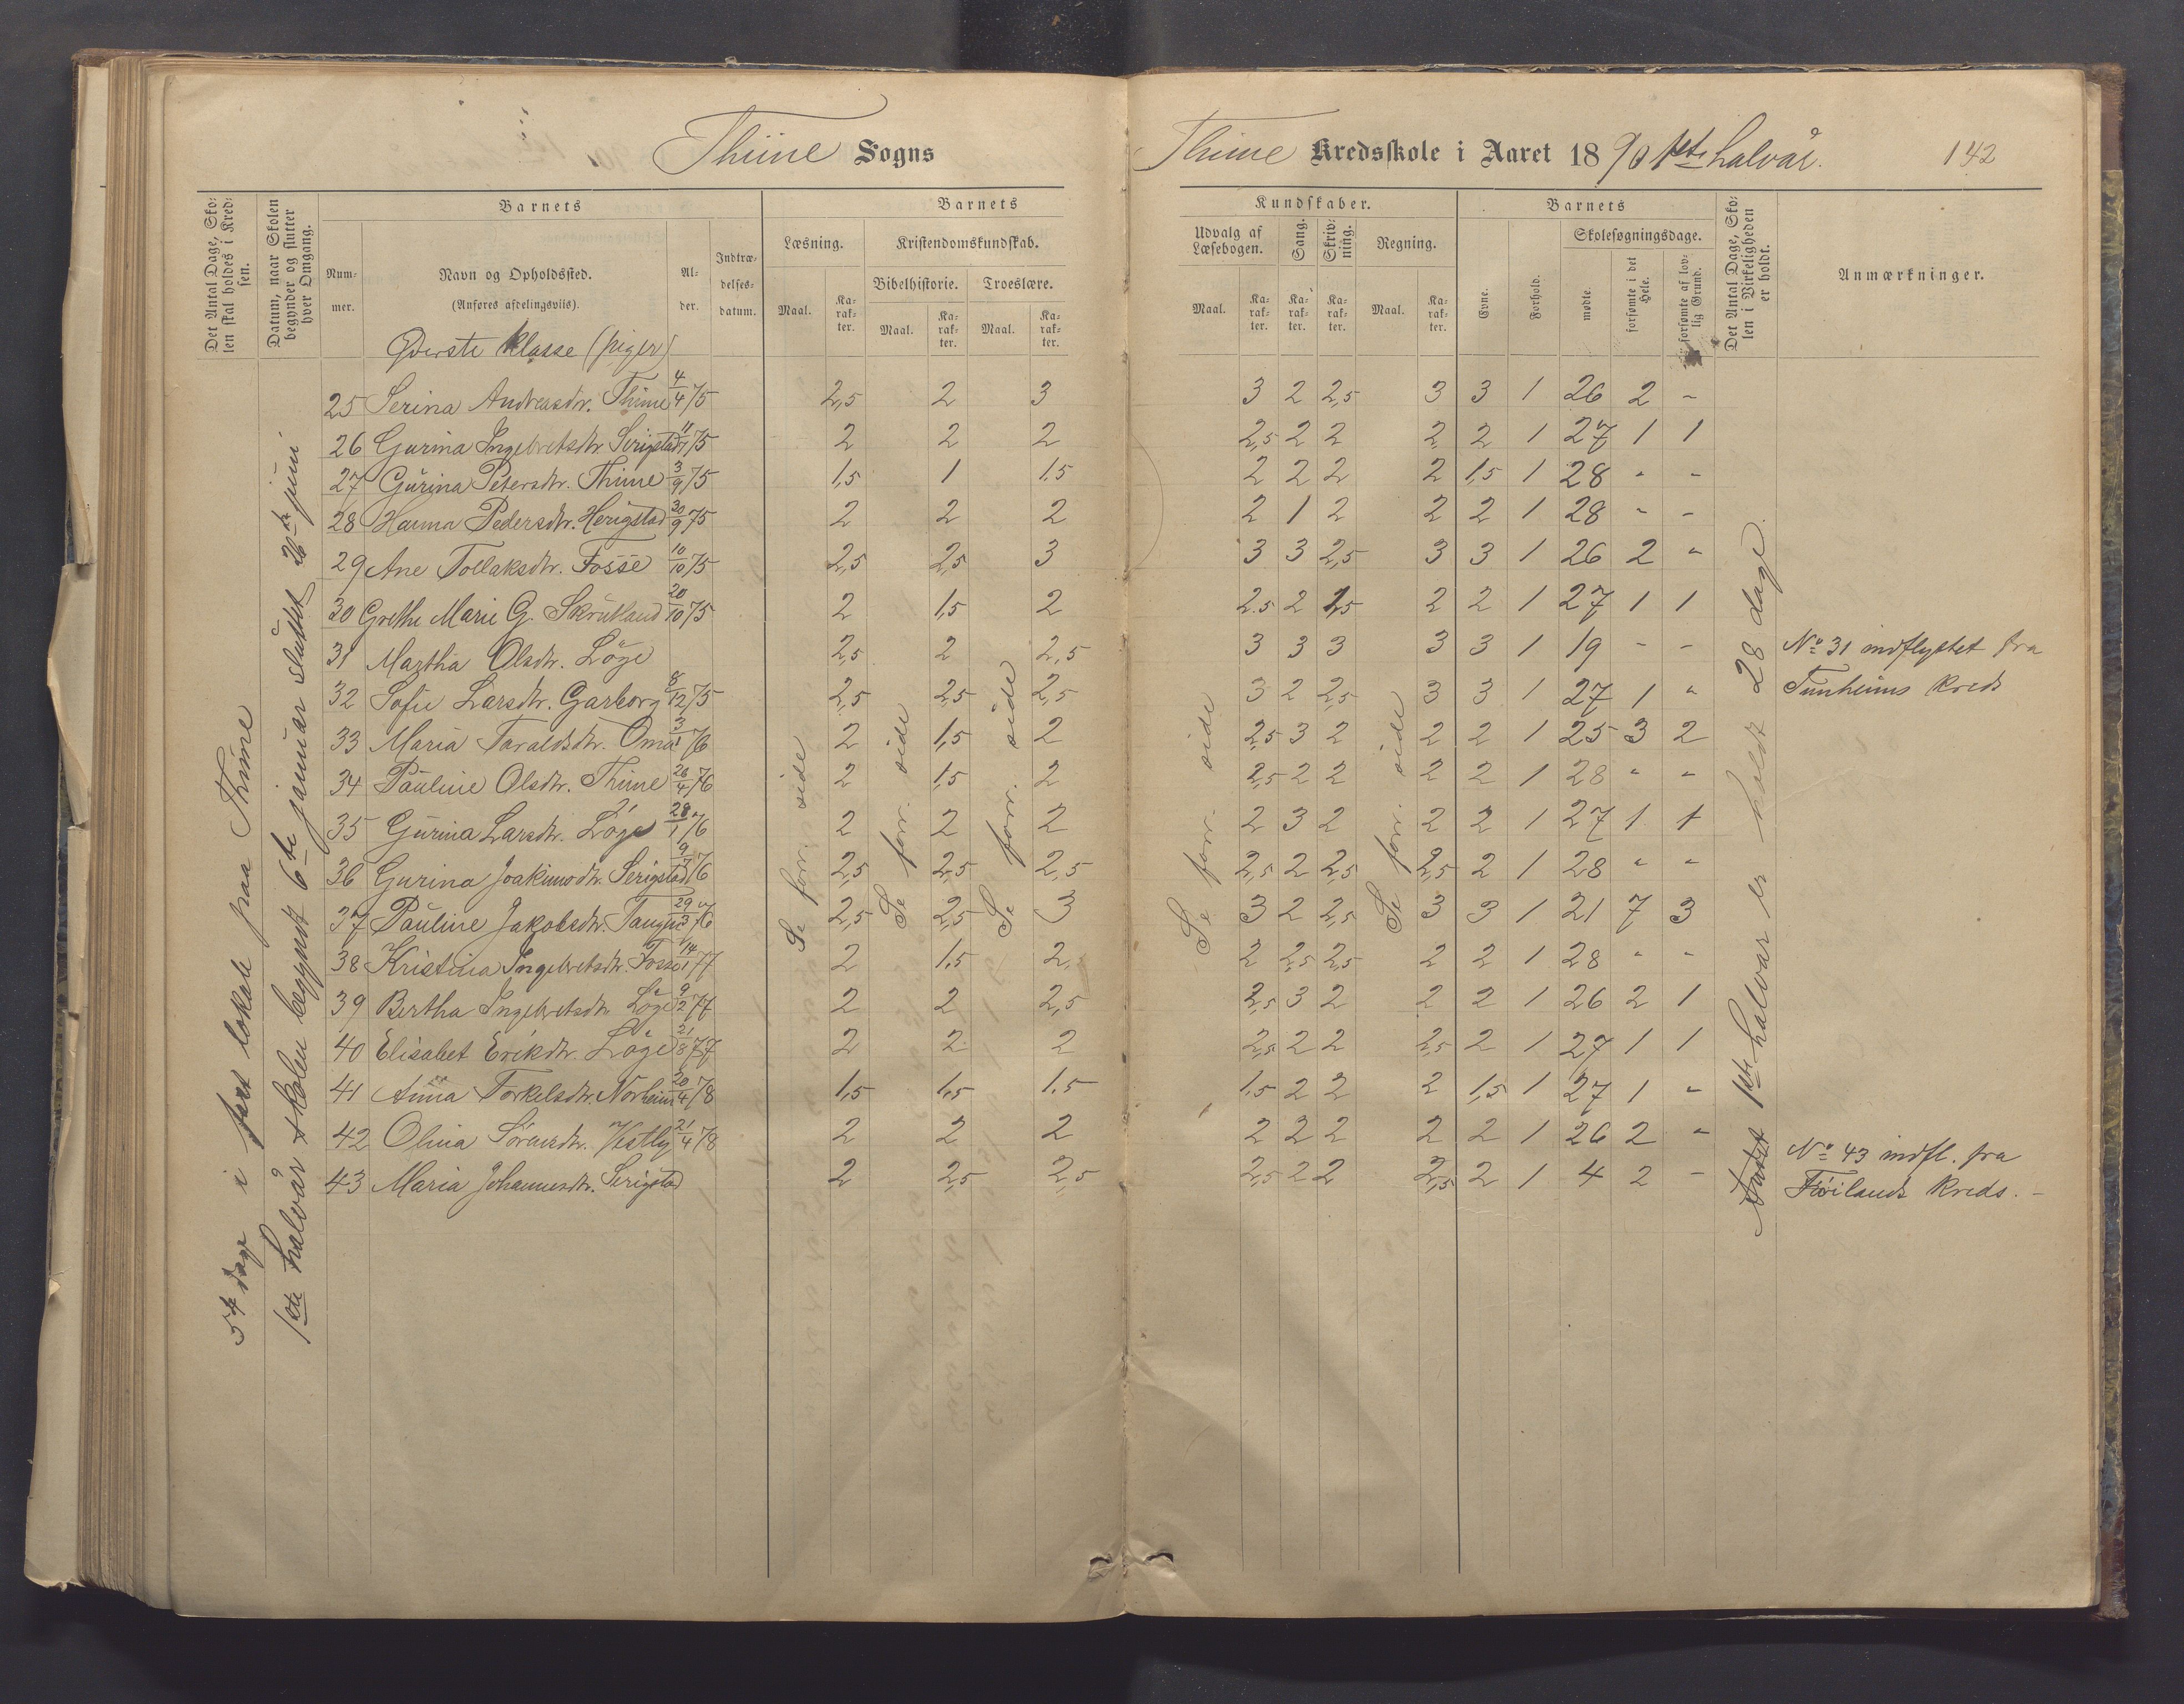 Thime Sogns
Thime Kredsskole i Aaret 1890 1ste halvår. 142
Det Antal Dage, Sko-
len skal holdes i Kred-
sen.
Datum, naar Skolen
begynder og slutter
hver Omgang.
Barnets
Num-
mer.
Navn og Opholdssted.
(Anføres afdelingsviis).
Al-
der.
Indtræ-
delses-
datum.
Barnets
Læsning.
Maal.
Ka-
rak-
ter.
Kristendomskundskab.
Bibelhistorie.
Maal.
Ka-
rak-
ter.
Troeslære.
Maal.
Ka-
rak-
ter.
Kundskaber.
Udvalg af
Læsebogen.
Maal.
Ka-
rak-
ter.
Sang.
Ka-
rak-
ter.
Skriv-
ning.
Ka-
rak-
ter.
Regning.
Maal.
Ka-
rak-
ter.
Barnets
Evne.
Forhold.
Skolesøgningsdage.
mødte.
forsømte i det
Hele.
forsømte af lov-
lig Grund.
Det Antal Dage, Sko-
len i Virkeligheden
er holdt.
Anmærkninger.
Øverste klasse (piger)
54 dage i fast lokale paa Thime
1ste halvår skolen begyndt 6te januar sluttet 26de juni
25 Serina Andreasdtr. Thime 4/4 75 2,5 2 3 3 2 2,5 3 3 1 26 2 -
26 Gurina Ingebretsdtr. Serigstad 75 2 2 2 2,5 2 2 2 2 1 27 1 1
27 Gurina Petersdtr. Thime 3/9 75 1,5 1 1,5 2 2 2 2 1,5 1 28 - -
28 Hanna Pedersdtr. Herigstad 30/9 75 2 2 2 2 1 2 2 2 1 28 - -
29 Ane Tollaksdtr. Fosse 10/10 75 2,5 2,5 3 3 3 2,5 3 3 1 26 2 -
30 Grethe Marie G. Skrudland 20/10 75 2 1,5 2 2,5 2 2,5 2 2 1 27 1 1
31 Martha Olsdtr. Löge 2,5 2 2,5 3 3 3 3 3 1 19 - - No 31 indflyttet fra
32 Sofie Larsdtr. Garborg 8/12 75 2,5 2,5 2,5 3 2 2,5 3 3 1 27 1 - Tunheims kreds
33 Maria Taraldsdtr. Oma 76 2 1,5 2 2,5 3 2 2 2 1 25 3 2
34 Pauline Olsdtr. Thime 26/4 76 2 1,5 2 2,5 2 2 2 2 1 28 - -
35 Gurina Larsdtr. Löge 28/1 76 2 2 2 2 3 2 2 2 1 27 1 1
36 Gurina Joakimsdtr. Serigstad 76 2,5 2,5 2,5 2,5 2 2,5 2,5 2 1 28 - -
37 Pauline Jakobsdtr. 29/3 76 2,5 2,5 3 3 2 2,5 3 3 1 21 7 3
38 Kristina Ingebretsdtr. Fosse 14/1 77 2 1,5 2, 2 2,5 2,5 2 2 1 28 - -
39 Bertha Ingebretsdtr. Löge 9/2 77 2 2 2,5 2,5 3 2 2 2 1 26 2 1
40 Elisabet Eriksdtr. Löge 21/8 77 2 2 2 2,5 2 2 2,5 2 1 27 1 1
41 Anna Torkelsdtr. Norheim 20/4 78 1,5 1,5 1,5 1,5 2 2 2 1,5 1 27 1 -
42 Olina Sörensdtr. Vestly 21/4 78 2 2 2 2 2 2 2 2 1 26 2 - No 43 indfl. fra
43 Maria Johannesdtr. Serigstad 2 2,5 2,5 2,5 2 2 2,5 2 1 4 2 - Föilands kreds. -
Se forr. side
Se forr. side
Se forr. side
Se forr. side
Se forr. side
1ste halvår er holdt 28 dage